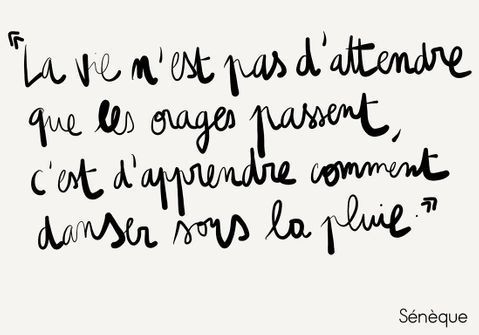 «La vie n'est pas d'attendre
que les orages passent,
c'est d'apprendre comment
danser sous la pluie.»
Sénèque